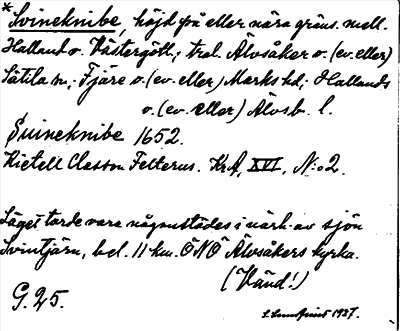 *Svineknibe, höjd på eller nära gräns. mell.
Halland o. Västergötl.; trol. Älvsåker o. (ev. eller)
Sätila sn; Fjäre o. (ev. eller) Marks hd; Hallands
o. (ev. eller) Älvsb. l.
Suineknibe 1652.
Kietell Classon Felterus. KrA, XVI, N:o 2.
Läget torde vara någonstädes i närh. av sjön
Svintjärn, bel. 11 km. ÖNÖ Älvsåkers kyrka.
(Vänd!)
G. 25.
1927.